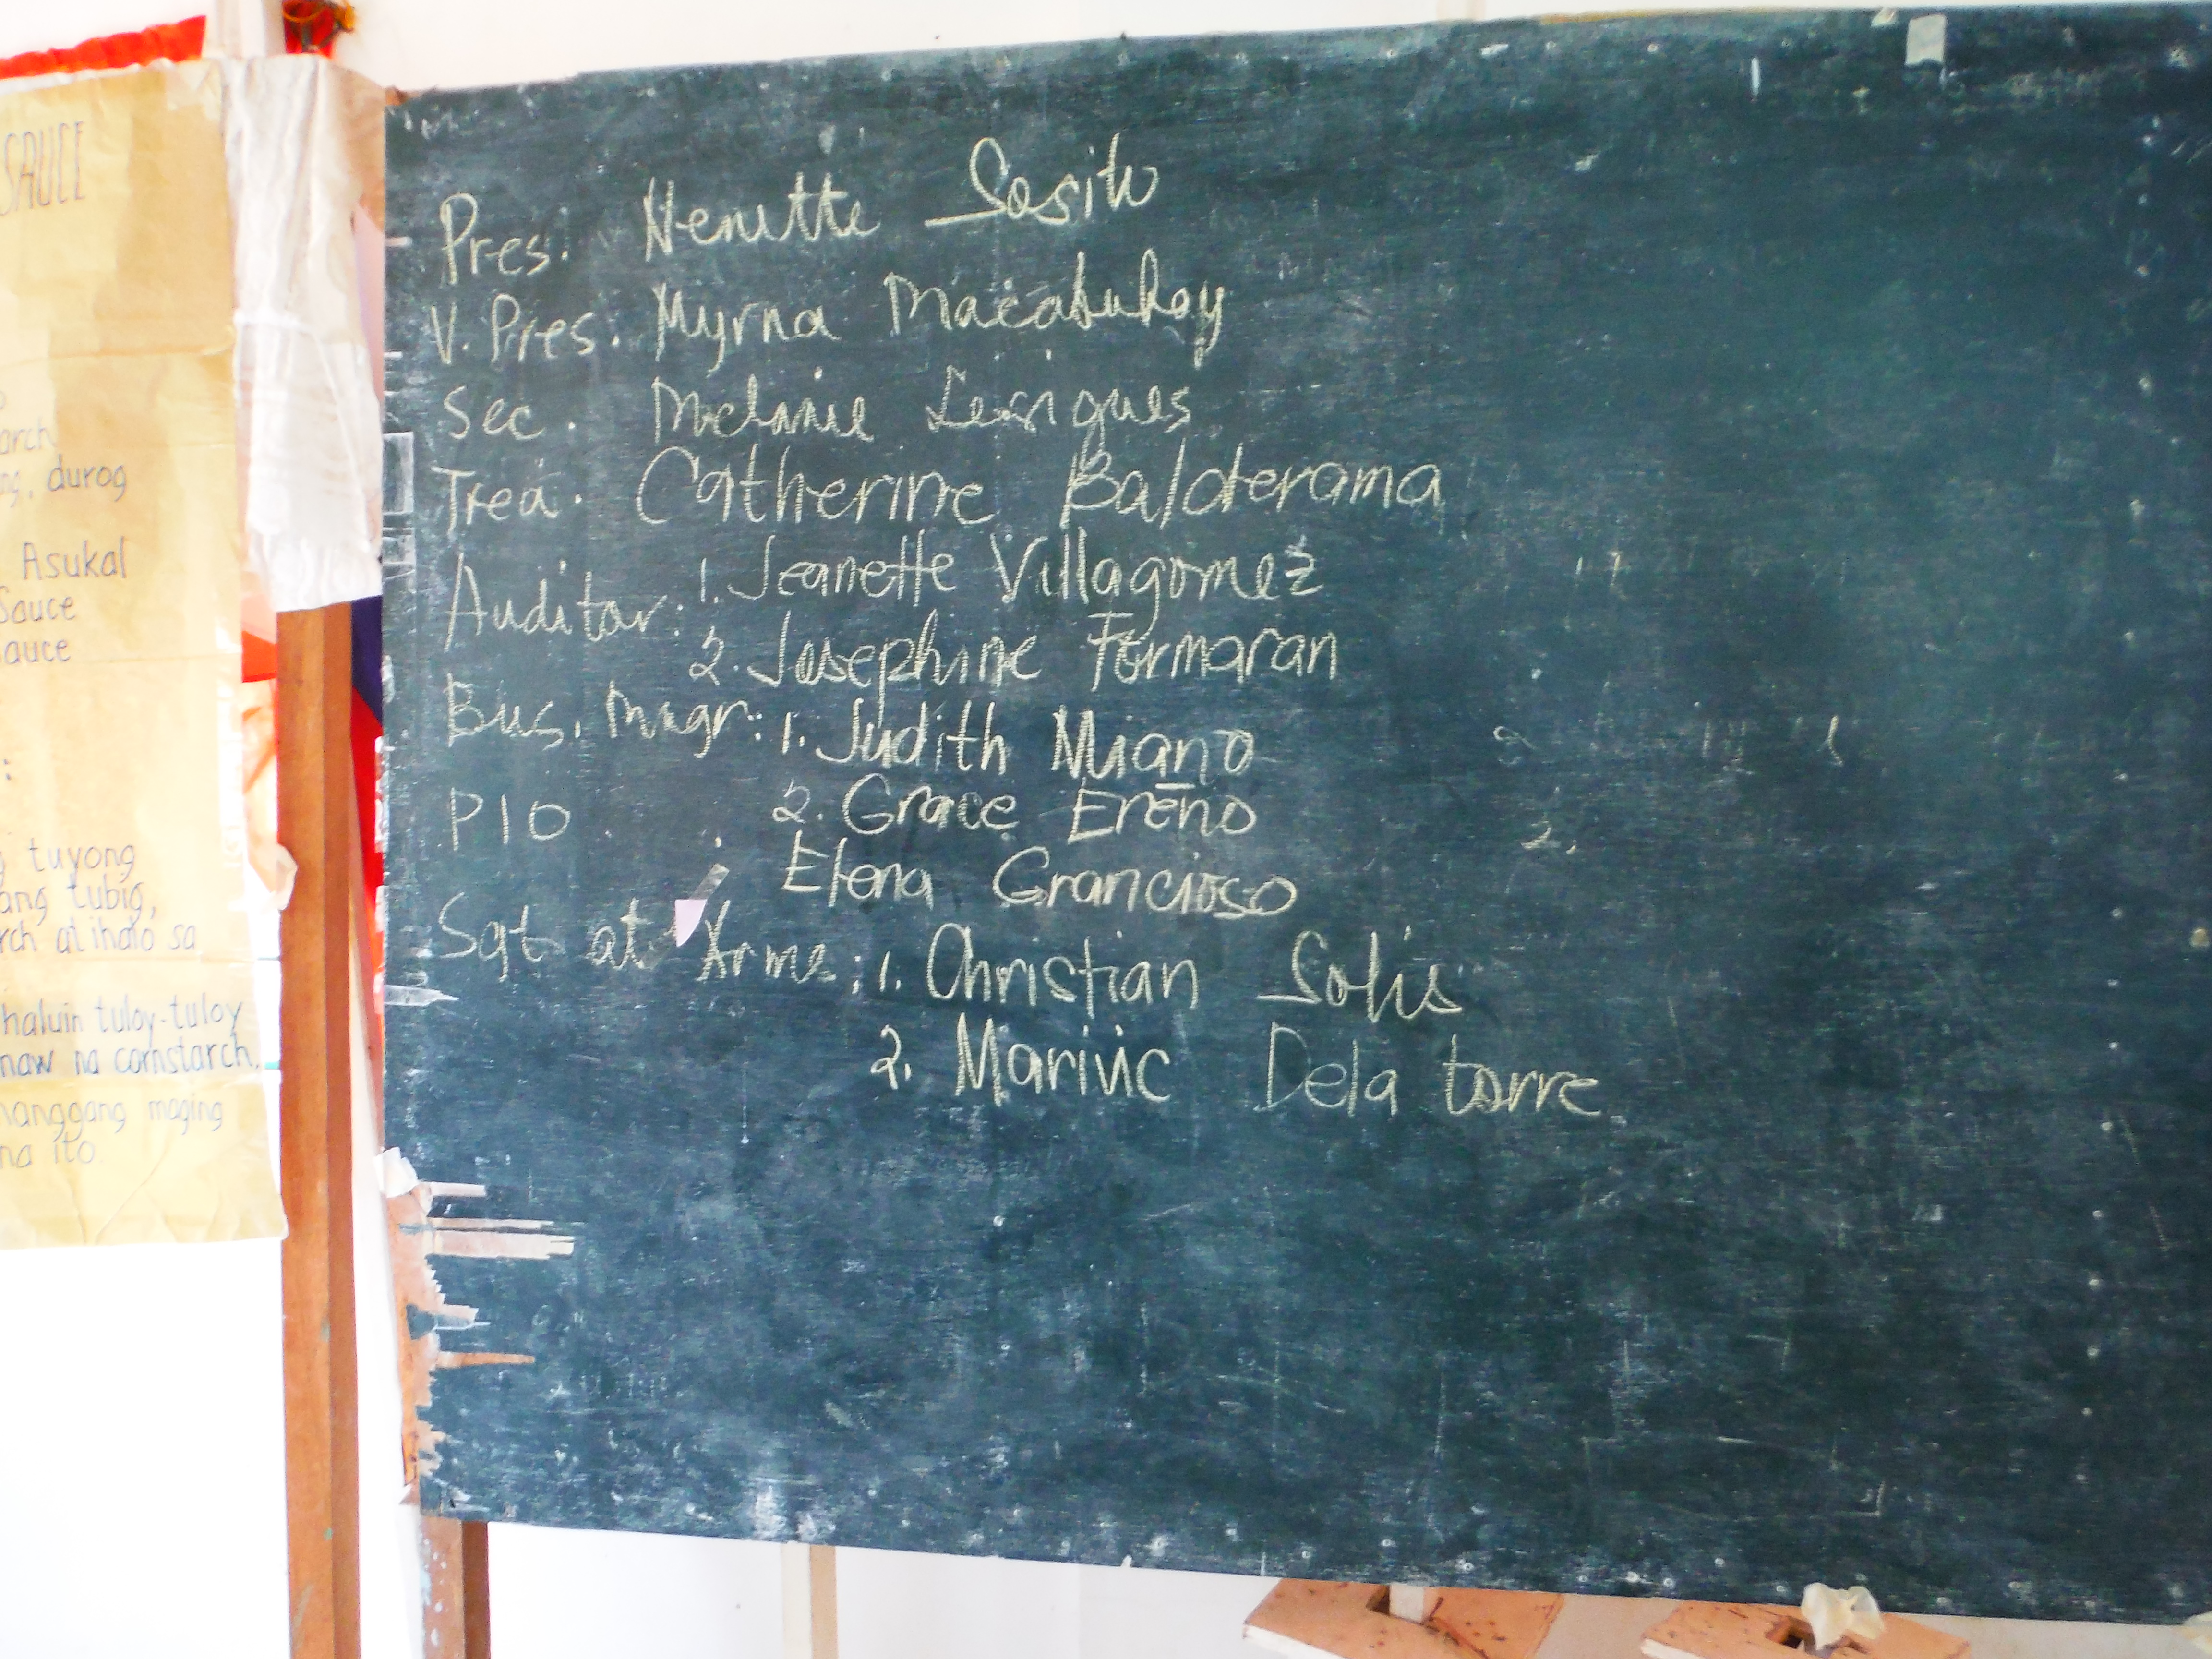 SAUCE
arch
durog
Asukal
Sauce
auce
tuyong
ang tubig,
rch at ihalo sa
haluin tuloy-tuloy
naw na cornstarch.
hanggang maging
na ito.
Pres. Nenette Sosito
V. Pres. Myrna Macabuhay
Sec. Melanie
Trea. Catherine Balderama
Auditor: 1. Jeanette Villagomez
2. Josephine Formaran
Bus. Mngr: 1. Judith Miano
PIO 2. Grace Ereño
Elena Grancioso
Sgt at Arms: 1. Christian Solis
2. Marivic Dela torre